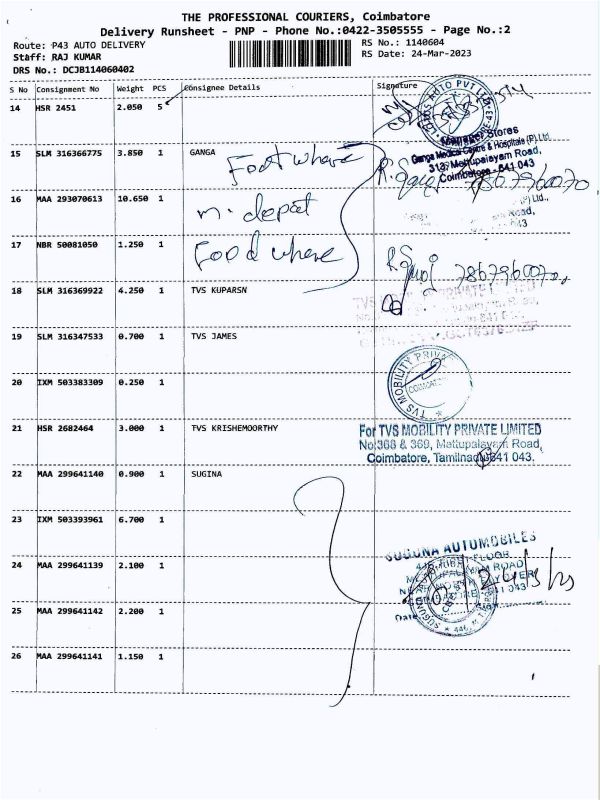 THE PROFESSIONAL COURIERS, Coimbatore
Delivery Runsheet - PNP - Phone No.:0422-3505555 - Page No.:2
Route: P43 AUTO DELIVERY
RS No.: 1140604
Staff: RAJ KUMAR
RS Date: 24-Mar-2023
DRS No.: DCJB114060402
S No Consignment No Weight PCS Consignee Details Signature
14 HSR 2451 2.050 5
Stores
Ganga Medical Centre & Hospitals (P) Ltd
313, Mettupalayam Road,
Coimbatore - 641 043
15 SLM 316366775 3.850 1 GANGA
Foot where
7867960070
16 MAA 293070613 10.650 1
m. depot
(P) Ltd.,
Road,
17 NBR 50081050 1.250 1
Food where
7867960070
18 SLM 316369922 4.250 1 TVS KUPARSN
19 SLM 316347533 0.700 1 TVS JAMES
20 IXM 503383309 0.250 1
TVS MOBILITY PRIVATE
COIMBATORE
21 HSR 2682464 3.000 1 TVS KRISHEMOORTHY
For TVS MOBILITY PRIVATE LIMITED
No:368 & 369, Mettupalayam Road,
Coimbatore, Tamilnadu-641 043.
22 MAA 299641140 0.900 1 SUGINA
23 IXM 503393961 6.700 1
SUGUNA AUTOMOBILES
24 MAA 299641139 2.100 1
25 MAA 299641142 2.200 1
Date
26 MAA 299641141 1.150 1